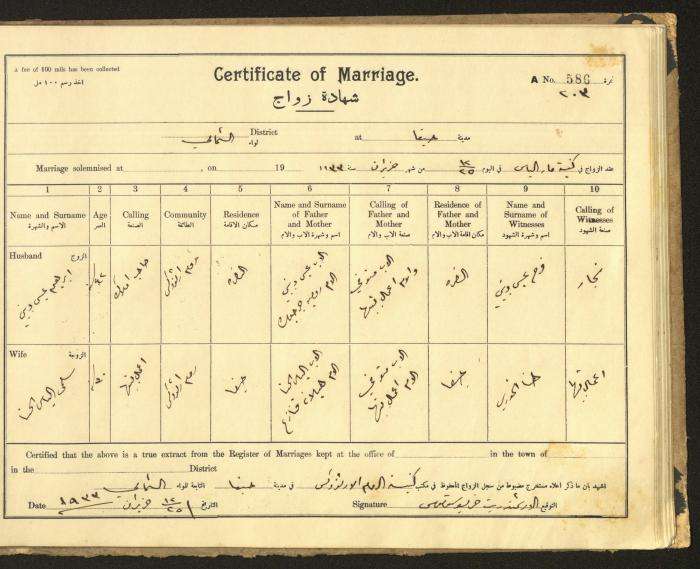 a fee of 100 mils has been collected
اخذ رسم ١٠٠ مل
Certificate of Marriage.
شهادة زواج
A No. 586 نمرة
٢٠٣
District لواء الشمالي at حيفا مدينة
Marriage solemnised at , on 19 ١٩٣٣ سنة حزيران من شهر ١٢/٢٥ في اليوم كنيسة مار الياس عقد الزواج في
1 2 3 4 5 6 7 8 9 10
Name and Surname الاسم والشهرة
Age العمر
Calling الصنعة
Community الطائفة
Residence مكان الاقامة
Name and Surname of Father and Mother اسم وشهرة الاب والام
Calling of Father and Mother صنعة الاب والام
Residence of Father and Mother مكان اقامة الاب والام
Name and Surname of Witnesses اسم وشهرة الشهود
Calling of Witnesses صنعة الشهود
Husband الزوج
ابراهيم عيسى
صاحب املاك
روم ارثوذكس
الاب عيسى
الاب متوفي
والام اعمال بيتها
فرح عيسى
نجار
Wife الزوجة
سلمى الياس الحنا
٣٠
اعمال بيتها
روم ارثوذكس
حيفا
الاب الياس الحنا
الاب متوفي
الام اعمال بيتها
حيفا
حنا الخوري
اعمال بيتها
Certified that the above is a true extract from the Register of Marriages kept at the office of in the town of
in the District
نشهد بان ما ذكر اعلاه مستخرج مضبوط من سجل الزواج المحفوظ في مكتب كنيسة الروم الارثوذكس في مدينة حيفا التابعة للواء الشمالي
Date ١٩٣٣ حزيران ١٢/٢٥ التاريخ Signature التوقيع